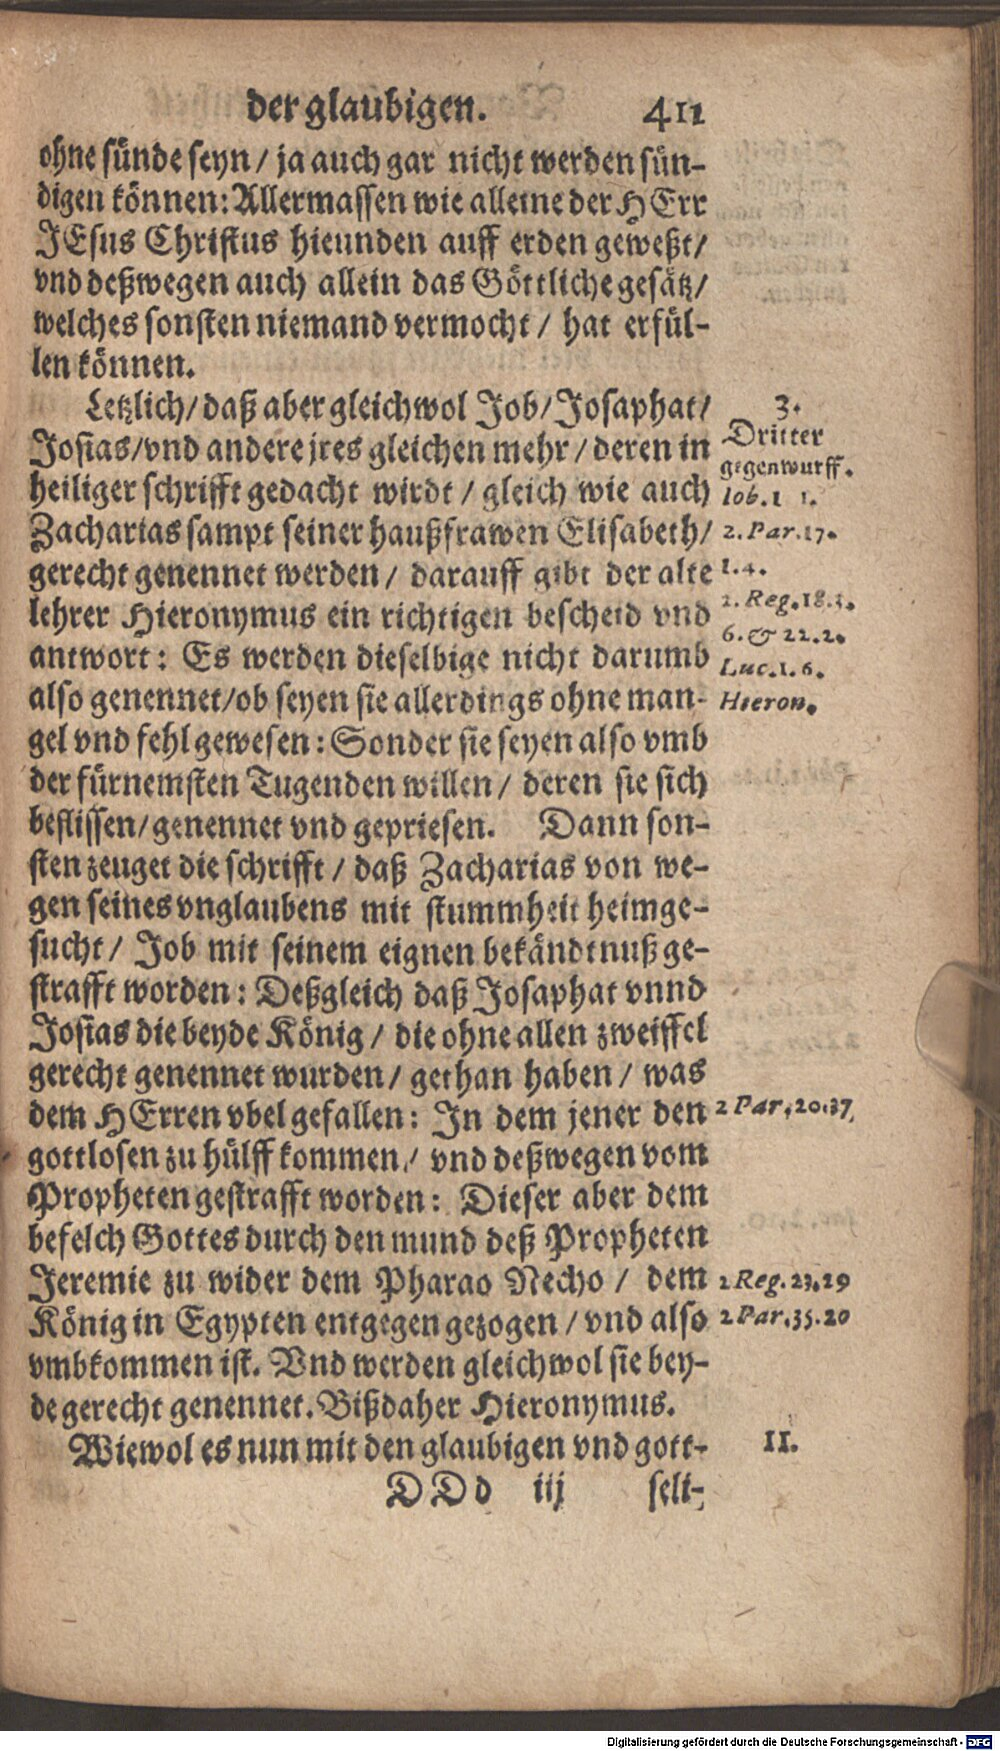 der glaubigen. 411
ohne sünde seyn / ja auch gar nicht werden sün-
digen können: Allermassen wie alleine der HErr
JEsus Christus hieunden auff erden geweßt /
vnd deßwegen auch allein das Göttliche gesätz /
welches sonsten niemand vermocht / hat erfül-
len können.
Letzlich / daß aber gleichwol Job / Josaphat /
Josias / vnd andere jres gleichen mehr / deren in
heiliger schrifft gedacht wirdt / gleich wie auch
Zacharias sampt seiner haußfrawen Elisabeth /
gerecht genennet werden / darauff gibt der alte
lehrer Hieronymus ein richtigen bescheid vnd
antwort: Es werden dieselbige nicht darumb
also genennet / ob seyen sie allerdings ohne man-
gel vnd fehl gewesen: Sonder sie seyen also vmb
der fürnemsten Tugenden willen / deren sie sich
beflissen / genennet vnd gepriesen. Dann son-
sten zeuget die schrifft / daß Zacharias von we-
gen seines vnglaubens mit stummheit heimge-
sucht / Job mit seinem eignen bekändtnuß ge-
strafft worden: Deßgleich daß Josaphat vnnd
Josias die beyde König / die ohne allen zweiffel
gerecht genennet wurden / gethan haben / was
dem HErren vbel gefallen: In dem jener den
gottlosen zu hülff kommen / vnd deßwegen vom
Propheten gestrafft worden: Dieser aber dem
befelch Gottes durch den mund deß Propheten
Jeremie zu wider dem Pharao Necho / dem
König in Egypten entgegen gezogen / vnd also
vmbkommen ist. Vnd werden gleichwol sie bey-
de gerecht genennet. Bißdaher Hieronymus.
Wiewol es nun mit den glaubigen vnd gott-
DDd iij seli-
3.
Dritter
gegenwurff.
Iob. 1 1.
2. Par. 17.
1. 4.
2. Reg. 18. 3.
6. & 22. 2.
Luc. 1. 6.
Hieron.
2 Par. 20. 37
2 Reg. 23. 29
2 Par. 35. 20
II.
Digitalisierung gefördert durch die Deutsche Forschungsgemeinschaft - DFG